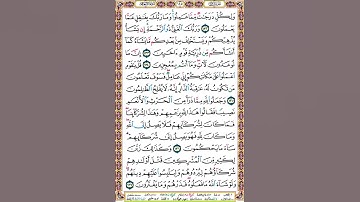 وَلِكُلٍّ دَرَجَٰتٌ مِّمَّا عَمِلُوا۟ وَمَا رَبُّكَ بِغَٰفِلٍ عَمَّا
يَعْمَلُونَ وَرَبُّكَ ٱلْغَنِىُّ ذُو ٱلرَّحْمَةِ إِن يَشَأْ
يُذْهِبْكُمْ وَيَسْتَخْلِفْ مِنۢ بَعْدِكُم مَّا يَشَآءُ كَمَآ
أَنشَأَكُم مِّن ذُرِّيَّةِ قَوْمٍ ءَاخَرِينَ إِنَّ مَا
تُوعَدُونَ لَءَاتٍ وَمَآ أَنتُم بِمُعْجِزِينَ قُلْ يَٰقَوْمِ
ٱعْمَلُوا۟ عَلَىٰ مَكَانَتِكُمْ إِنِّى عَامِلٌ فَسَوْفَ تَعْلَمُونَ
مَن تَكُونُ لَهُۥ عَٰقِبَةُ ٱلدَّارِ إِنَّهُۥ لَا يُفْلِحُ ٱلظَّٰلِمُونَ
وَجَعَلُوا۟ لِلَّهِ مِمَّا ذَرَأَ مِنَ ٱلْحَرْثِ وَٱلْأَنْعَٰمِ
نَصِيبًا فَقَالُوا۟ هَٰذَا لِلَّهِ بِزَعْمِهِمْ وَهَٰذَا لِشُرَكَآئِنَا
فَمَا كَانَ لِشُرَكَآئِهِمْ فَلَا يَصِلُ إِلَى ٱللَّهِ
وَمَا كَانَ لِلَّهِ فَهُوَ يَصِلُ إِلَىٰ شُرَكَآئِهِمْ
سَآءَ مَا يَحْكُمُونَ وَكَذَٰلِكَ زَيَّنَ
لِكَثِيرٍ مِّنَ ٱلْمُشْرِكِينَ قَتْلَ أَوْلَٰدِهِمْ
شُرَكَآؤُهُمْ لِيُرْدُوهُمْ وَلِيَلْبِسُوا۟ عَلَيْهِمْ دِينَهُمْ
وَلَوْ شَآءَ ٱللَّهُ مَا فَعَلُوهُ فَذَرْهُمْ وَمَا يَفْتَرُونَ